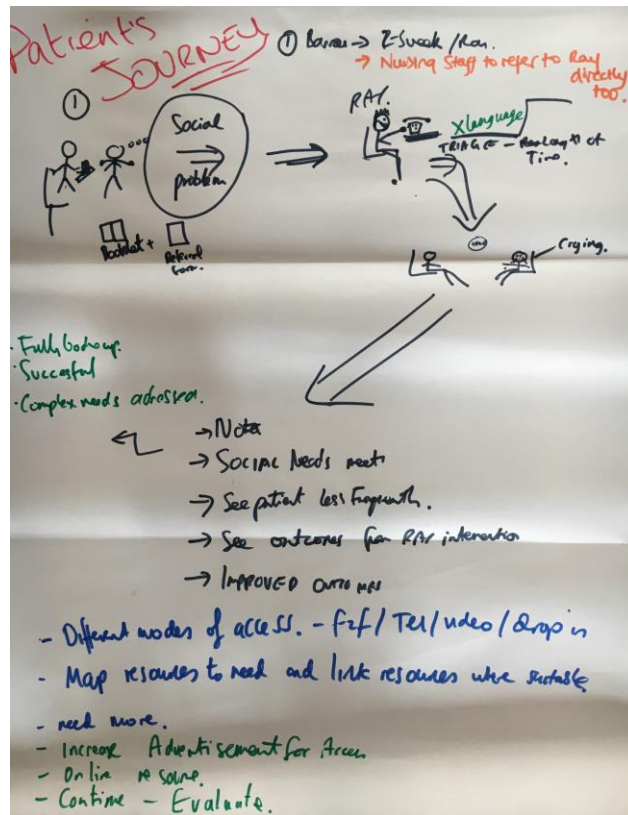 Patient's
JOURNEY
① Barrier → Z-Sweek / Ron.
→ Nursing Staff to refer to Ray
directly
too.
①
Social
problem
RAY.
X language
TRIAGE - length of
Time.
Booklet +
Referral
form.
Crying.
· Fully booked up.
· Succesful
· Complex needs adressed.
→ Note
→ SOCIAL Needs meet
→ See patient less frequently.
→ See outcomes from RAY intervention
→ IMPROVED OUTCOMES
- Different modes of access. - f2f / Tel / video / drop in
- Map resources to need and link resources where suitable
- need more.
- Increase Advertisement for Access
- Online resource.
- Continue - Evaluate.